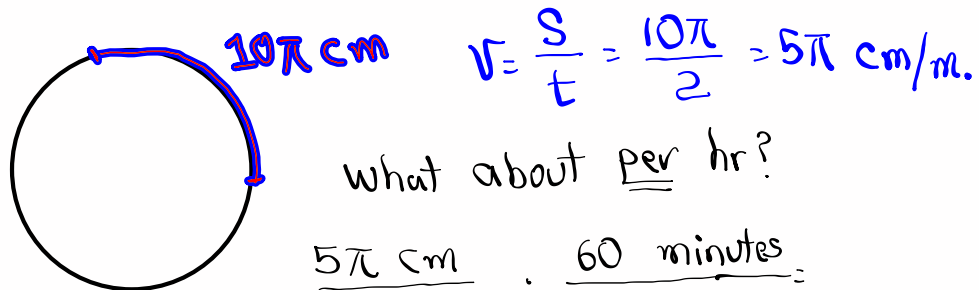 10π cm
V = S/t = 10π/2 = 5π cm/m.
What about per hr?
5π cm . 60 minutes =